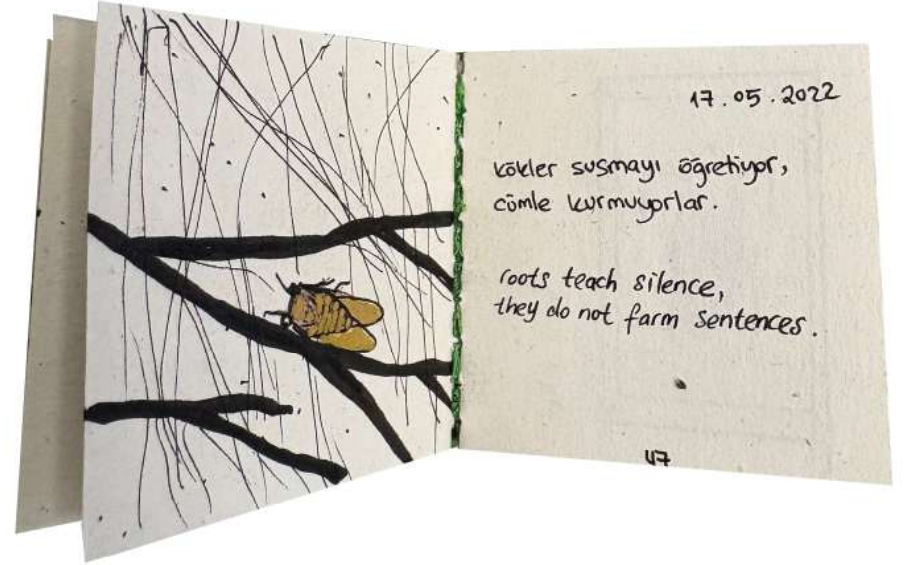 17.05.2022
kökler susmayı öğretiyor,
cümle kurmuyorlar.
roots teach silence,
they do not farm sentences.
47